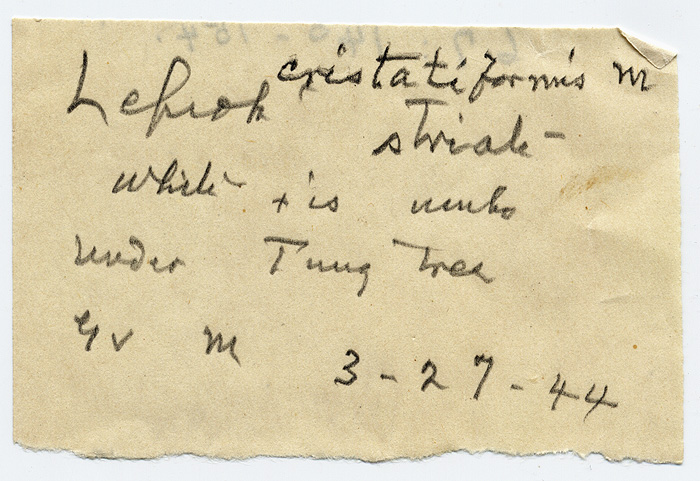 Lepiota cristatiformis M
striate
white + is umbo
under Tung tree
Gv M 3-27-44